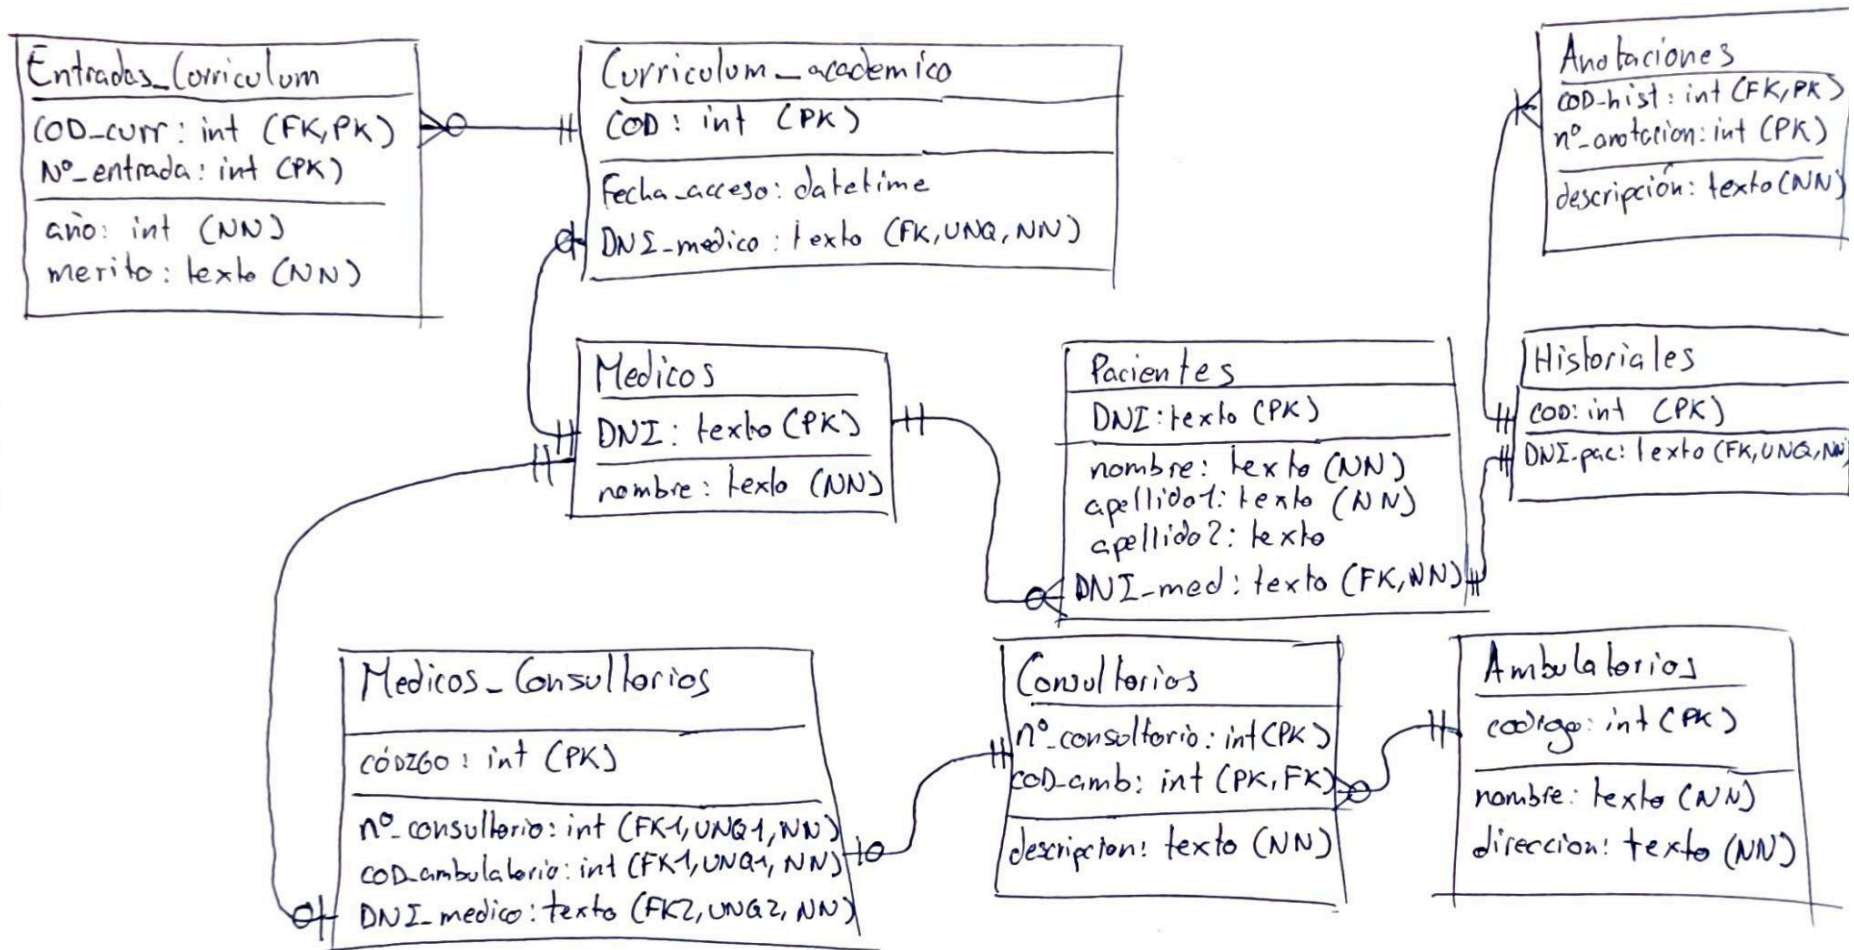 Entradas_Corriculum
COD_curr: int (FK,PK)
Nº_entrada: int (PK)
año: int (NN)
merito: texto (NN)
Curriculum_academico
COD: int (PK)
Fecha_acceso: datetime
DNI_medico: texto (FK,UNQ,NN)
Anotaciones
COD-hist: int (FK,PK)
nº_anotacion: int (PK)
descripción: texto (NN)
Medicos
DNI: texto (PK)
nombre: texto (NN)
Pacientes
DNI: texto (PK)
nombre: texto (NN)
apellido1: texto (NN)
apellido2: texto
DNI_med: texto (FK,NN)
Historiales
COD: int (PK)
DNI-pac: texto (FK,UNQ,NN)
Medicos_Consultorios
CÓDIGO: int (PK)
nº_consultorio: int (FK1,UNQ1,NN)
COD_ambulatorio: int (FK1,UNQ1,NN)
DNI_medico: texto (FK2,UNQ2,NN)
Consultorios
nº_consultorio: int (PK)
COD_amb: int (PK,FK)
descripcion: texto (NN)
Ambulatorios
codigo: int (PK)
nombre: texto (NN)
direccion: texto (NN)